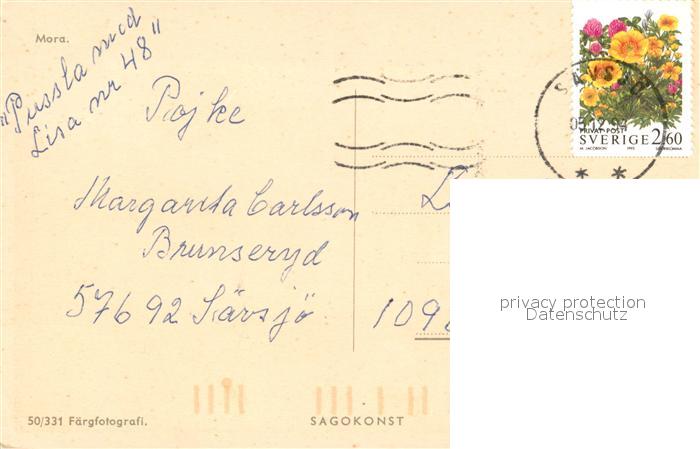 Mora.
"Pussla med
Lisa nr 48"
Pojke
Margareta Carlsson
Brunseryd
57692 Sävsjö
109
50/331 Färgfotografi.
SAGOKONST
PRIVATPOST
SVERIGE 2,60
M. JACOBSON 1993
SÄVSJÖ
05.12.94
privacy protection
Datenschutz